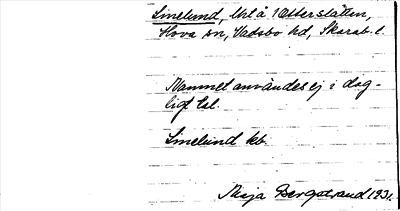 Linelund, lht å Otterslätten,
Hova sn, Vadsbo hd, Skarab. l.
Namnet användes ej i dag-
ligt tal.
Linelund kb.
Maja Bergstrand 1931.